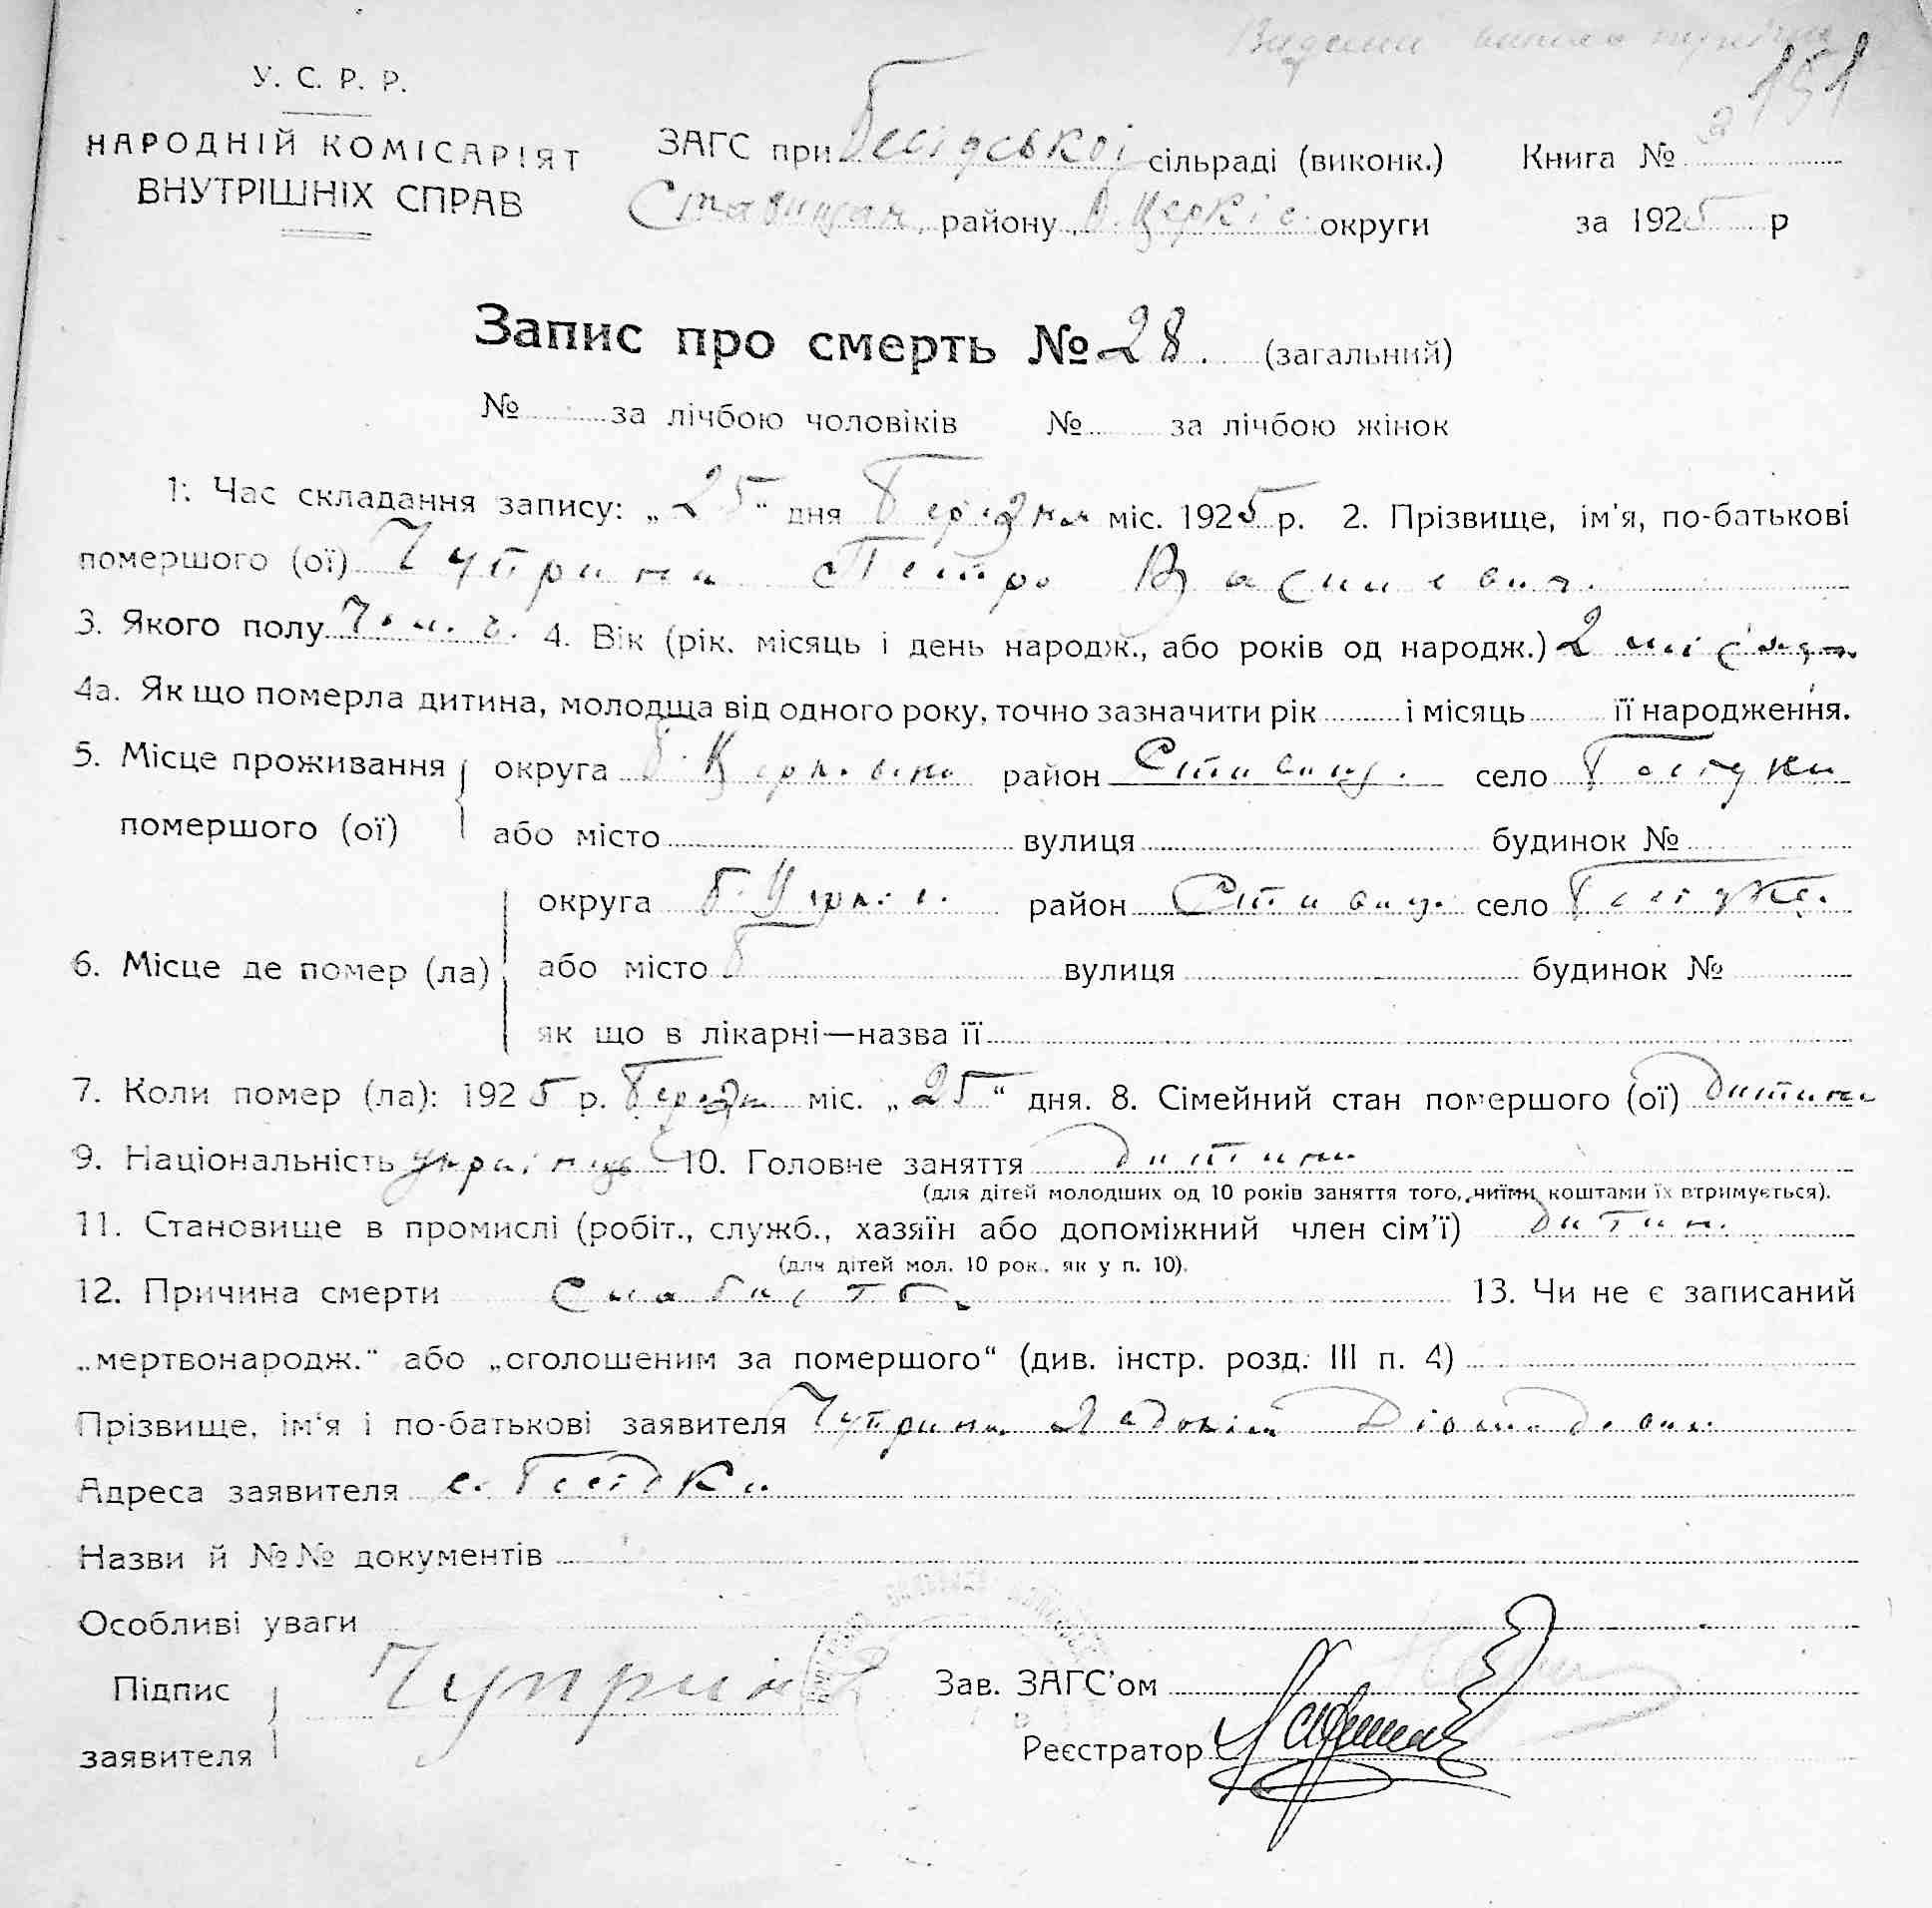 151
У. С. Р. Р.
НАРОДНІЙ КОМІСАРІЯТ
ВНУТРІШНІХ СПРАВ
ЗАГС при Бесідської сільраді (виконк.) Книга №
Ставищан. району Б. Церків. округи за 1925 р
Запис про смерть № 28. (загальний)
№ за лічбою чоловіків № за лічбою жінок
1. Час складання запису: „25“ дня Березня міс. 1925 р. 2. Прізвище, ім'я, по-батькові
помершого (ої) Чуприна Петро Василевич.
3. Якого полу Чол. 4. Вік (рік. місяць і день народж., або років од народж.) 2 місяця
4а. Як що померла дитина, молодща від одного року, точно зазначити рік і місяць її народження.
5. Місце проживання помершого (ої) округа Б. Церковно район Ставищ. село Бесідки
або місто вулиця будинок №
6. Місце де помер (ла) округа Б. Церк. район Ставищ. село Бесідка.
або місто Б вулиця будинок №
як що в лікарні—назва її
7. Коли помер (ла): 1925 р. Березн міс. „25“ дня. 8. Сімейний стан помершого (ої) Дитина
9. Національність українець 10. Головне заняття Дитина
(для дітей молодших од 10 років заняття того, чиїми коштами їх втримується).
11. Становище в промислі (робіт., служб., хазяїн або допоміжний член сім'ї) Дитин.
(для дітей мол. 10 рок., як у п. 10).
12. Причина смерти Слабість 13. Чи не є записаний
„мертвонародж.“ або „оголошеним за помершого“ (див. інстр. розд. III п. 4)
Прізвище, ім‘я і по-батькові заявителя Чуприна
Адреса заявителя с. Бесідка
Назви й №№ документів
Особливі уваги
Підпис заявителя Чуприна
Зав. ЗАГС'ом
Реєстратор